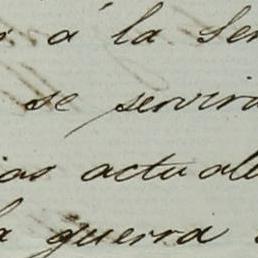 á la Ser
se servirá
ias actuale
la guerra